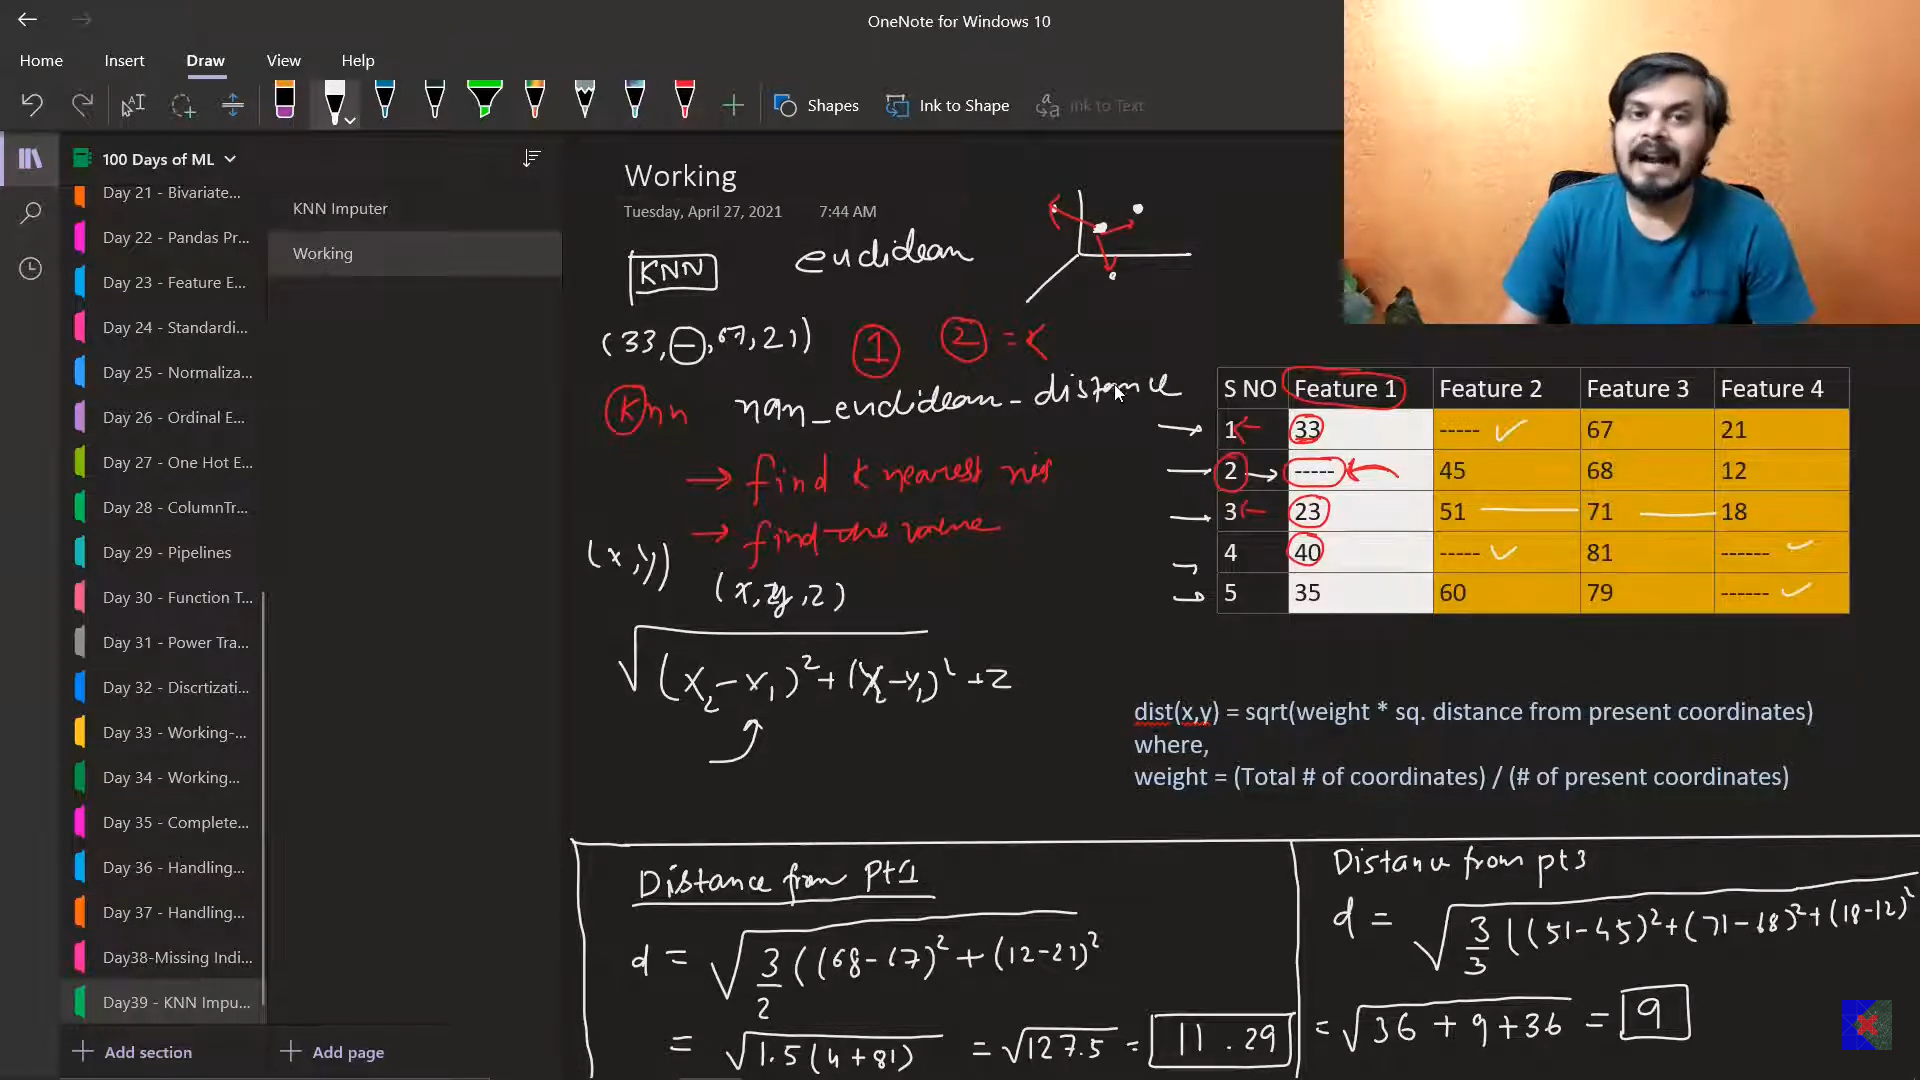 OneNote for Windows 10
Home Insert Draw View Help
Shapes Ink to Shape Ink to Text
100 Days of ML
Day 21 - Bivariate...
Day 22 - Pandas Pr...
Day 23 - Feature E...
Day 24 - Standardi...
Day 25 - Normaliza...
Day 26 - Ordinal E...
Day 27 - One Hot E...
Day 28 - ColumnTr...
Day 29 - Pipelines
Day 30 - Function T...
Day 31 - Power Tra...
Day 32 - Discrtizati...
Day 33 - Working-...
Day 34 - Working...
Day 35 - Complete...
Day 36 - Handling...
Day 37 - Handling...
Day38-Missing Indi...
Day39 - KNN Impu...
Add section
KNN Imputer
Working
Add page
Working
Tuesday, April 27, 2021 7:44 AM
KNN euclidean
(33, –, 67, 21) 1 2 = K
Knn nan_euclidean-distance
→ find K nearest
→ find the value
(x, y)
(x, y, z)
√(x₂-x₁)²+(y₂-y₁)² +z
S NO Feature 1 Feature 2 Feature 3 Feature 4
1 33 ----- 67 21
2 ----- 45 68 12
3 23 51 71 18
4 40 ----- 81 ------
5 35 60 79 ------
dist(x,y) = sqrt(weight * sq. distance from present coordinates)
where,
weight = (Total # of coordinates) / (# of present coordinates)
Distance from Pt1
d = √3/2 ((68-67)²+(12-21)²
= √1.5(4+81) = √127.5 = 11.29
Distance from pt3
d = √3/3 ((51-45)²+(71-68)²+(18-12)²
= √36+9+36 = 9